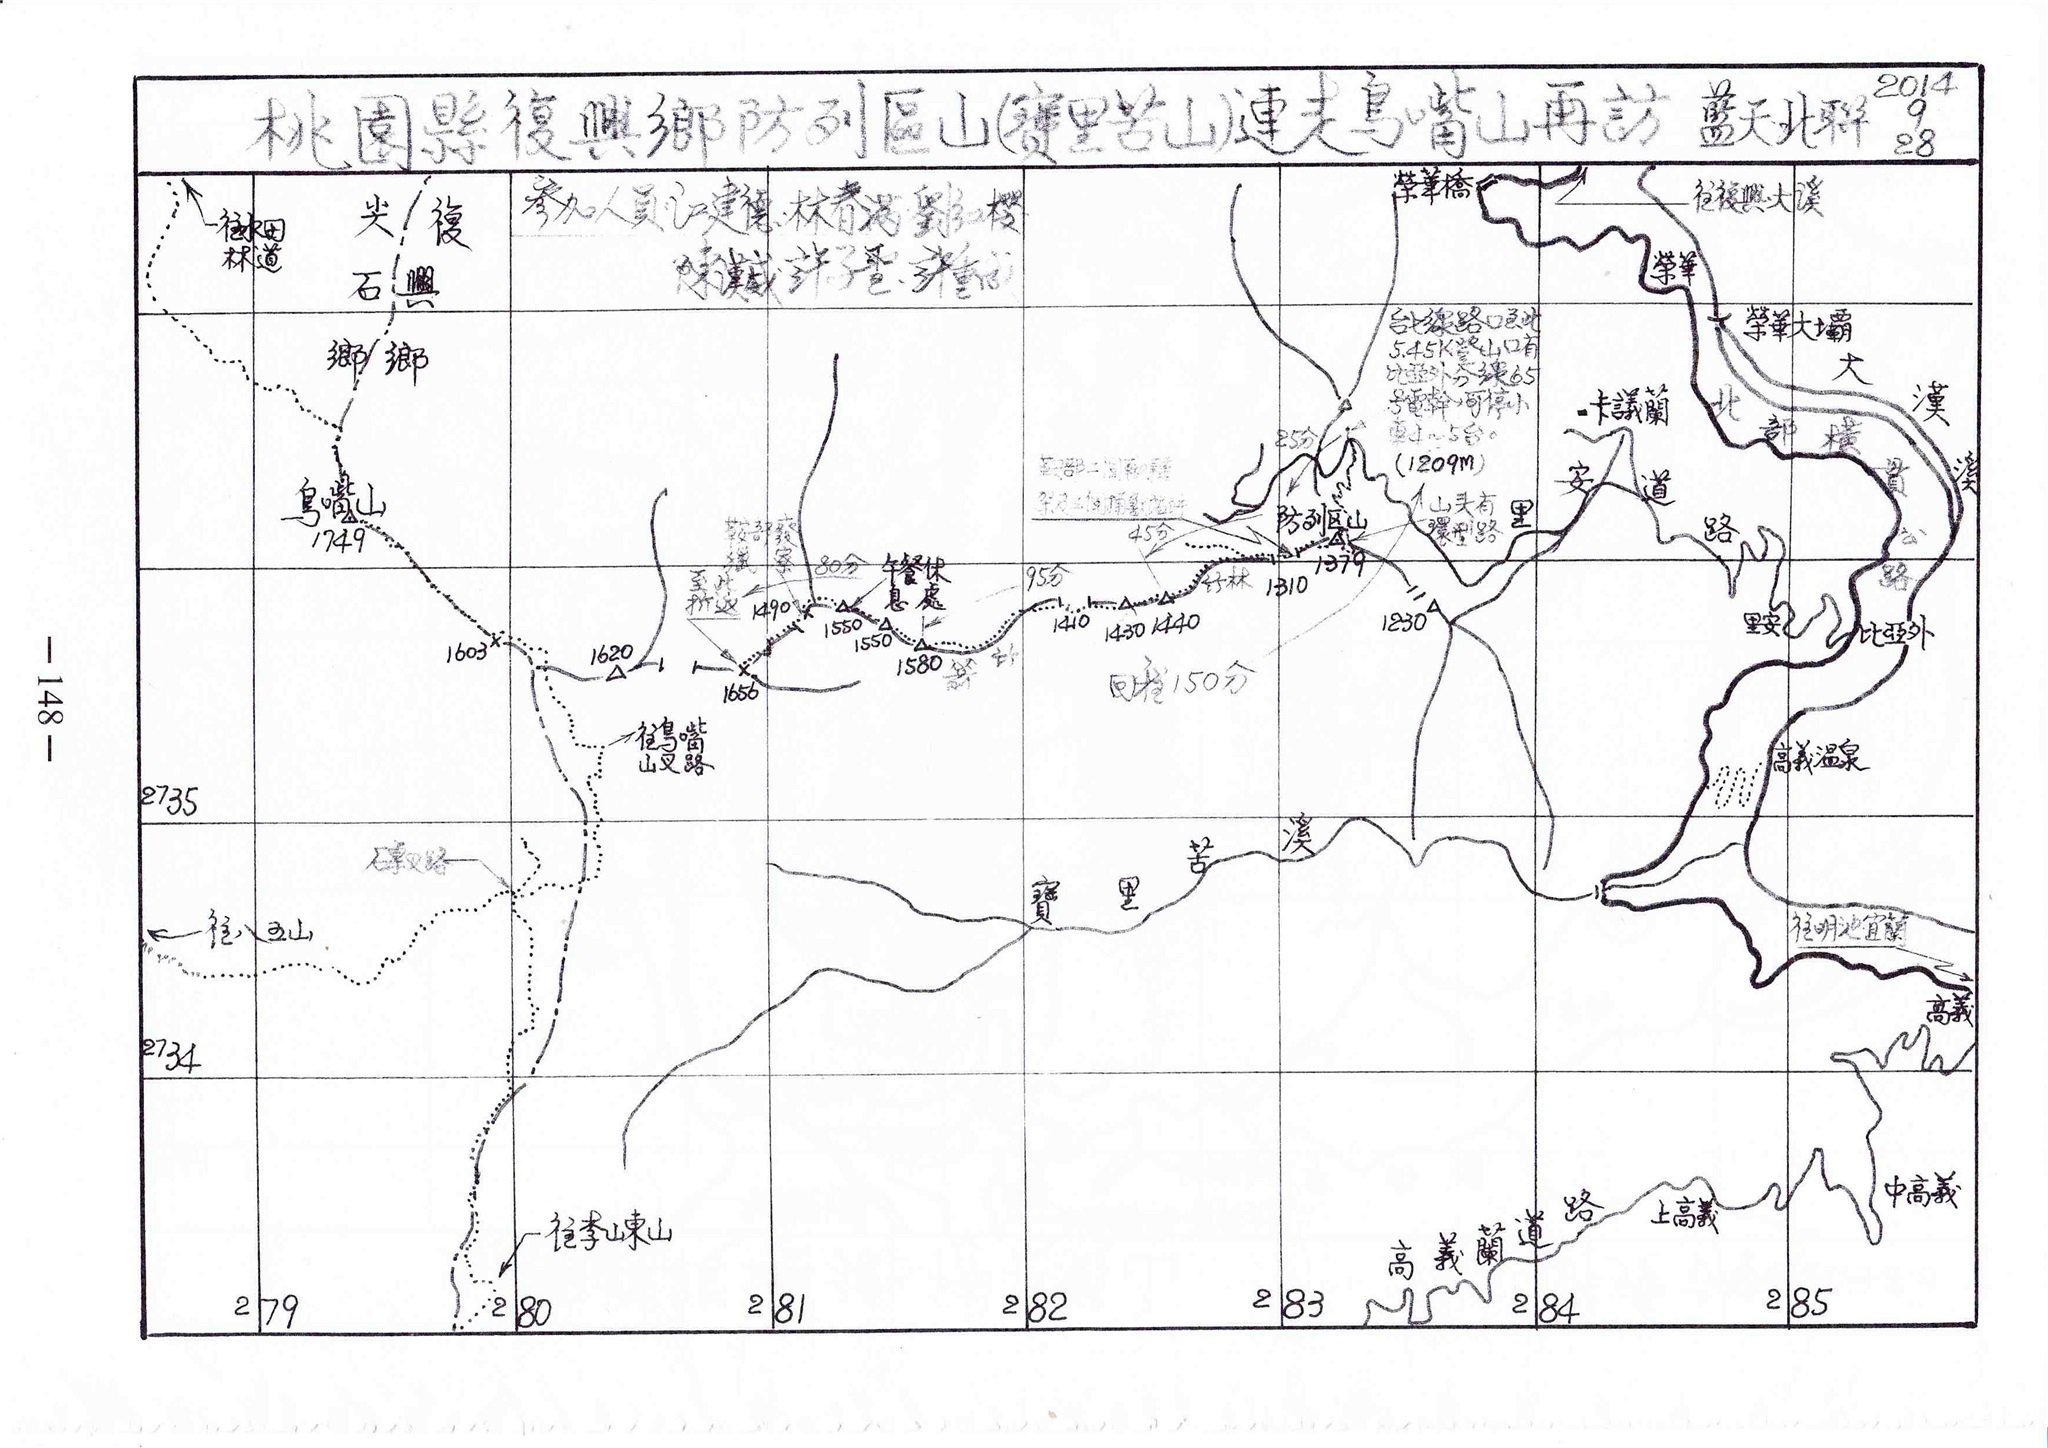 桃園縣復興鄉防列區山(寶里苦山)連走鳥嘴山再訪 藍天北聯 2014 9 28
參加人員:江建德.林春滿.劉紅櫻
榮華橋
往復興大溪
往水田
林道
尖石鄉
復興鄉
榮華
榮華大壩
大漢溪
北部橫貫公路
台七線路口至此
5.45K登山口有
比亞外分線65
號電桿.可停小
車4~5台。
(1209m)
卡議蘭
里安道路
25分
鳥嘴山
1749
防列区山
1379
山头有
環型路
45分
竹林
1310
1230
80分
午餐休
息處
95分
至此
折返
1490
1550
1550
1580
箭竹
1410
1430
1440
1603
1620
1656
回程150分
里安
比亞外
往鳥嘴
山叉路
高義溫泉
2735
寶里苦溪
往八五山
往明池宜蘭
高義
2734
往李山東山
中高義
上高義
高義蘭道路
279
280
281
282
283
284
285
— 148 —